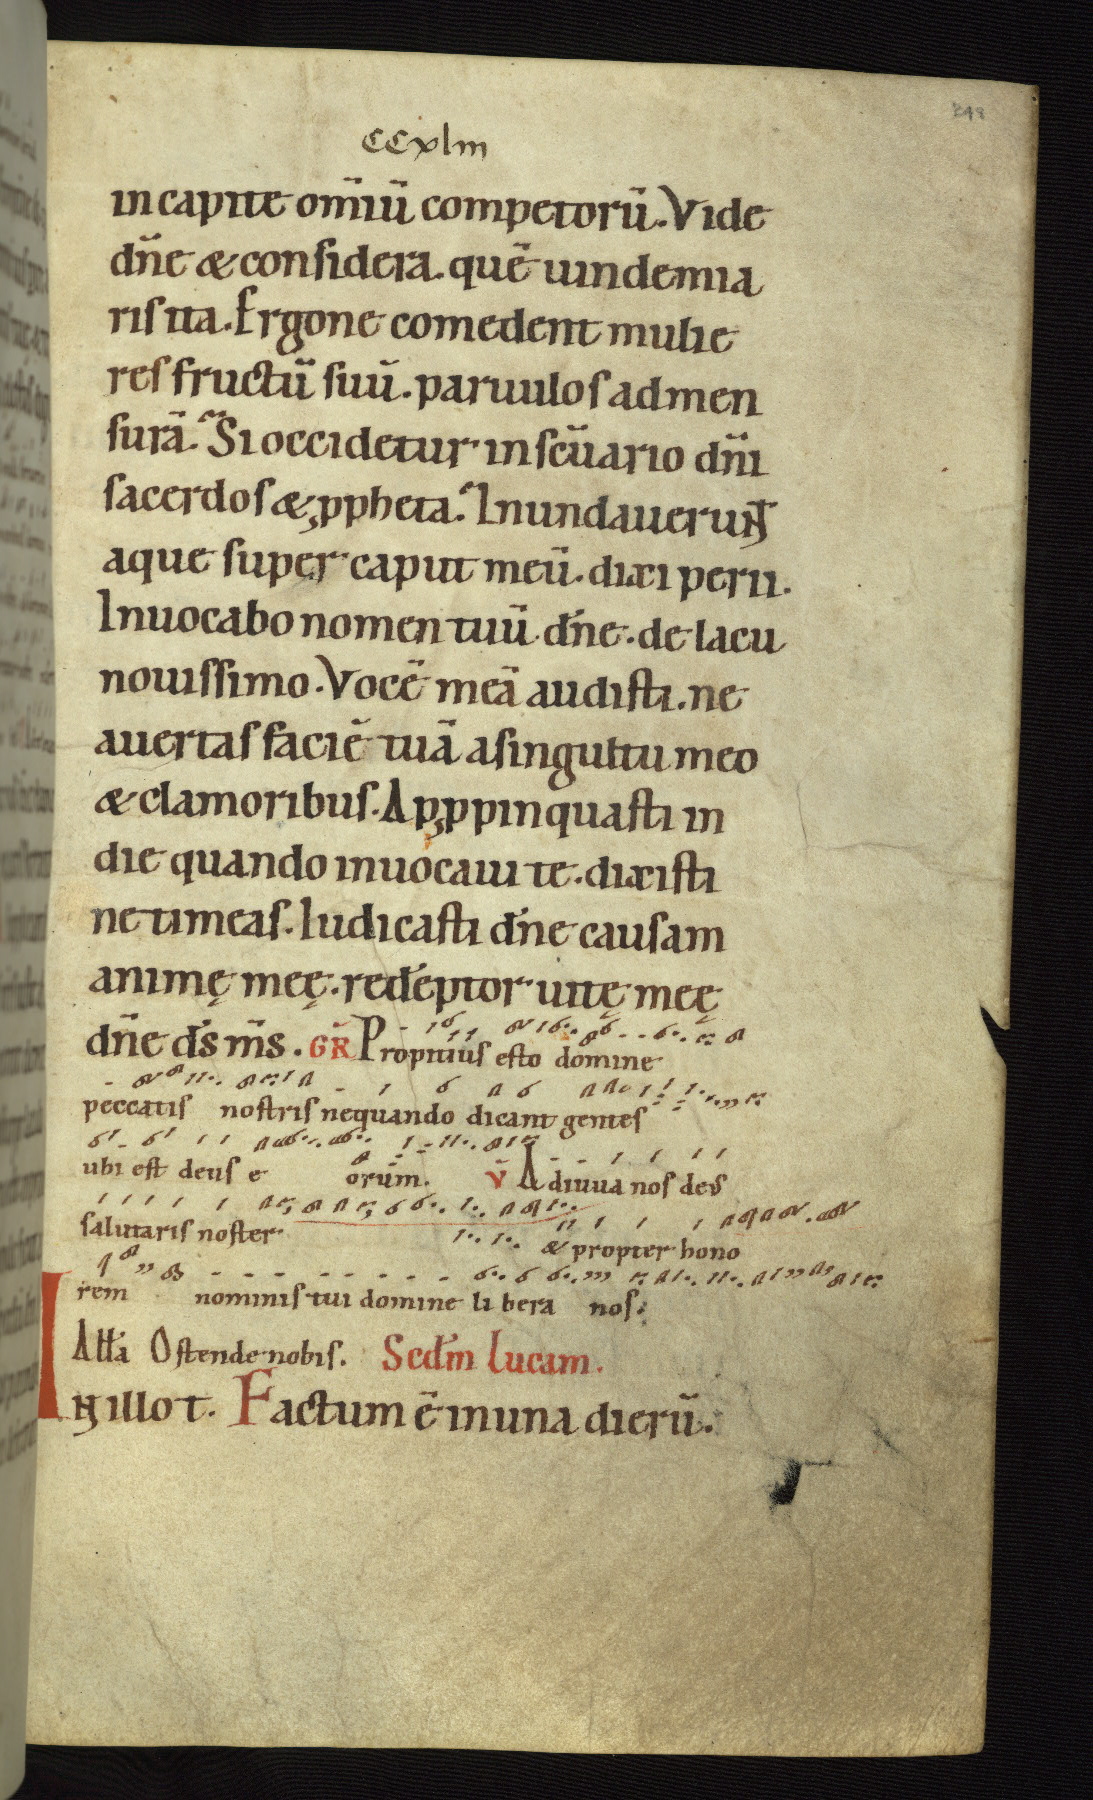 248
CCxlm
in capite om̄iū competorū. Vide
dn̄e & considera. quē uindemia
ris ita. Ergone comedent mulie
res fructū suū. paruulos ad men
surā. Si occidetur in scūario dn̄i
sacerdos & ꝓpheta. Inundauerunt
aque super caput meū. dixi perii.
Inuocabo nomen tuū dn̄e. de lacu
nouissimo. Vocē meā audisti. ne
auertas faciē tuā a singultu meo
& clamoribus. Apꝓpinquasti in
die quando inuocaui te. dixisti
ne timeas. Iudicasti dn̄e causam
animę meę. redēptor uitę meę
dn̄e ds̄ ms̄. GR̄ Propitius esto domine
peccatis nostris nequando dicant gentes
ubi est deus eorum. v̄ Adiuua nos deus
salutaris noster & propter hono
rem nominis tui domine libera nos.
All̄a Ostende nobis. Scdm̄ lucam.
In illo t. Factum ē in una dierū.